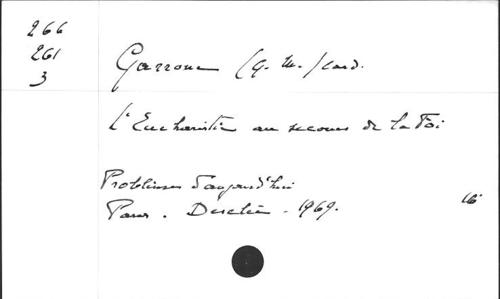 266
261
3
Garrone (G. M.) card.
L'Eucharistie au secours de la Foi
Problèmes d'aujourd'hui
Paris. Desclée. 1969.
16°